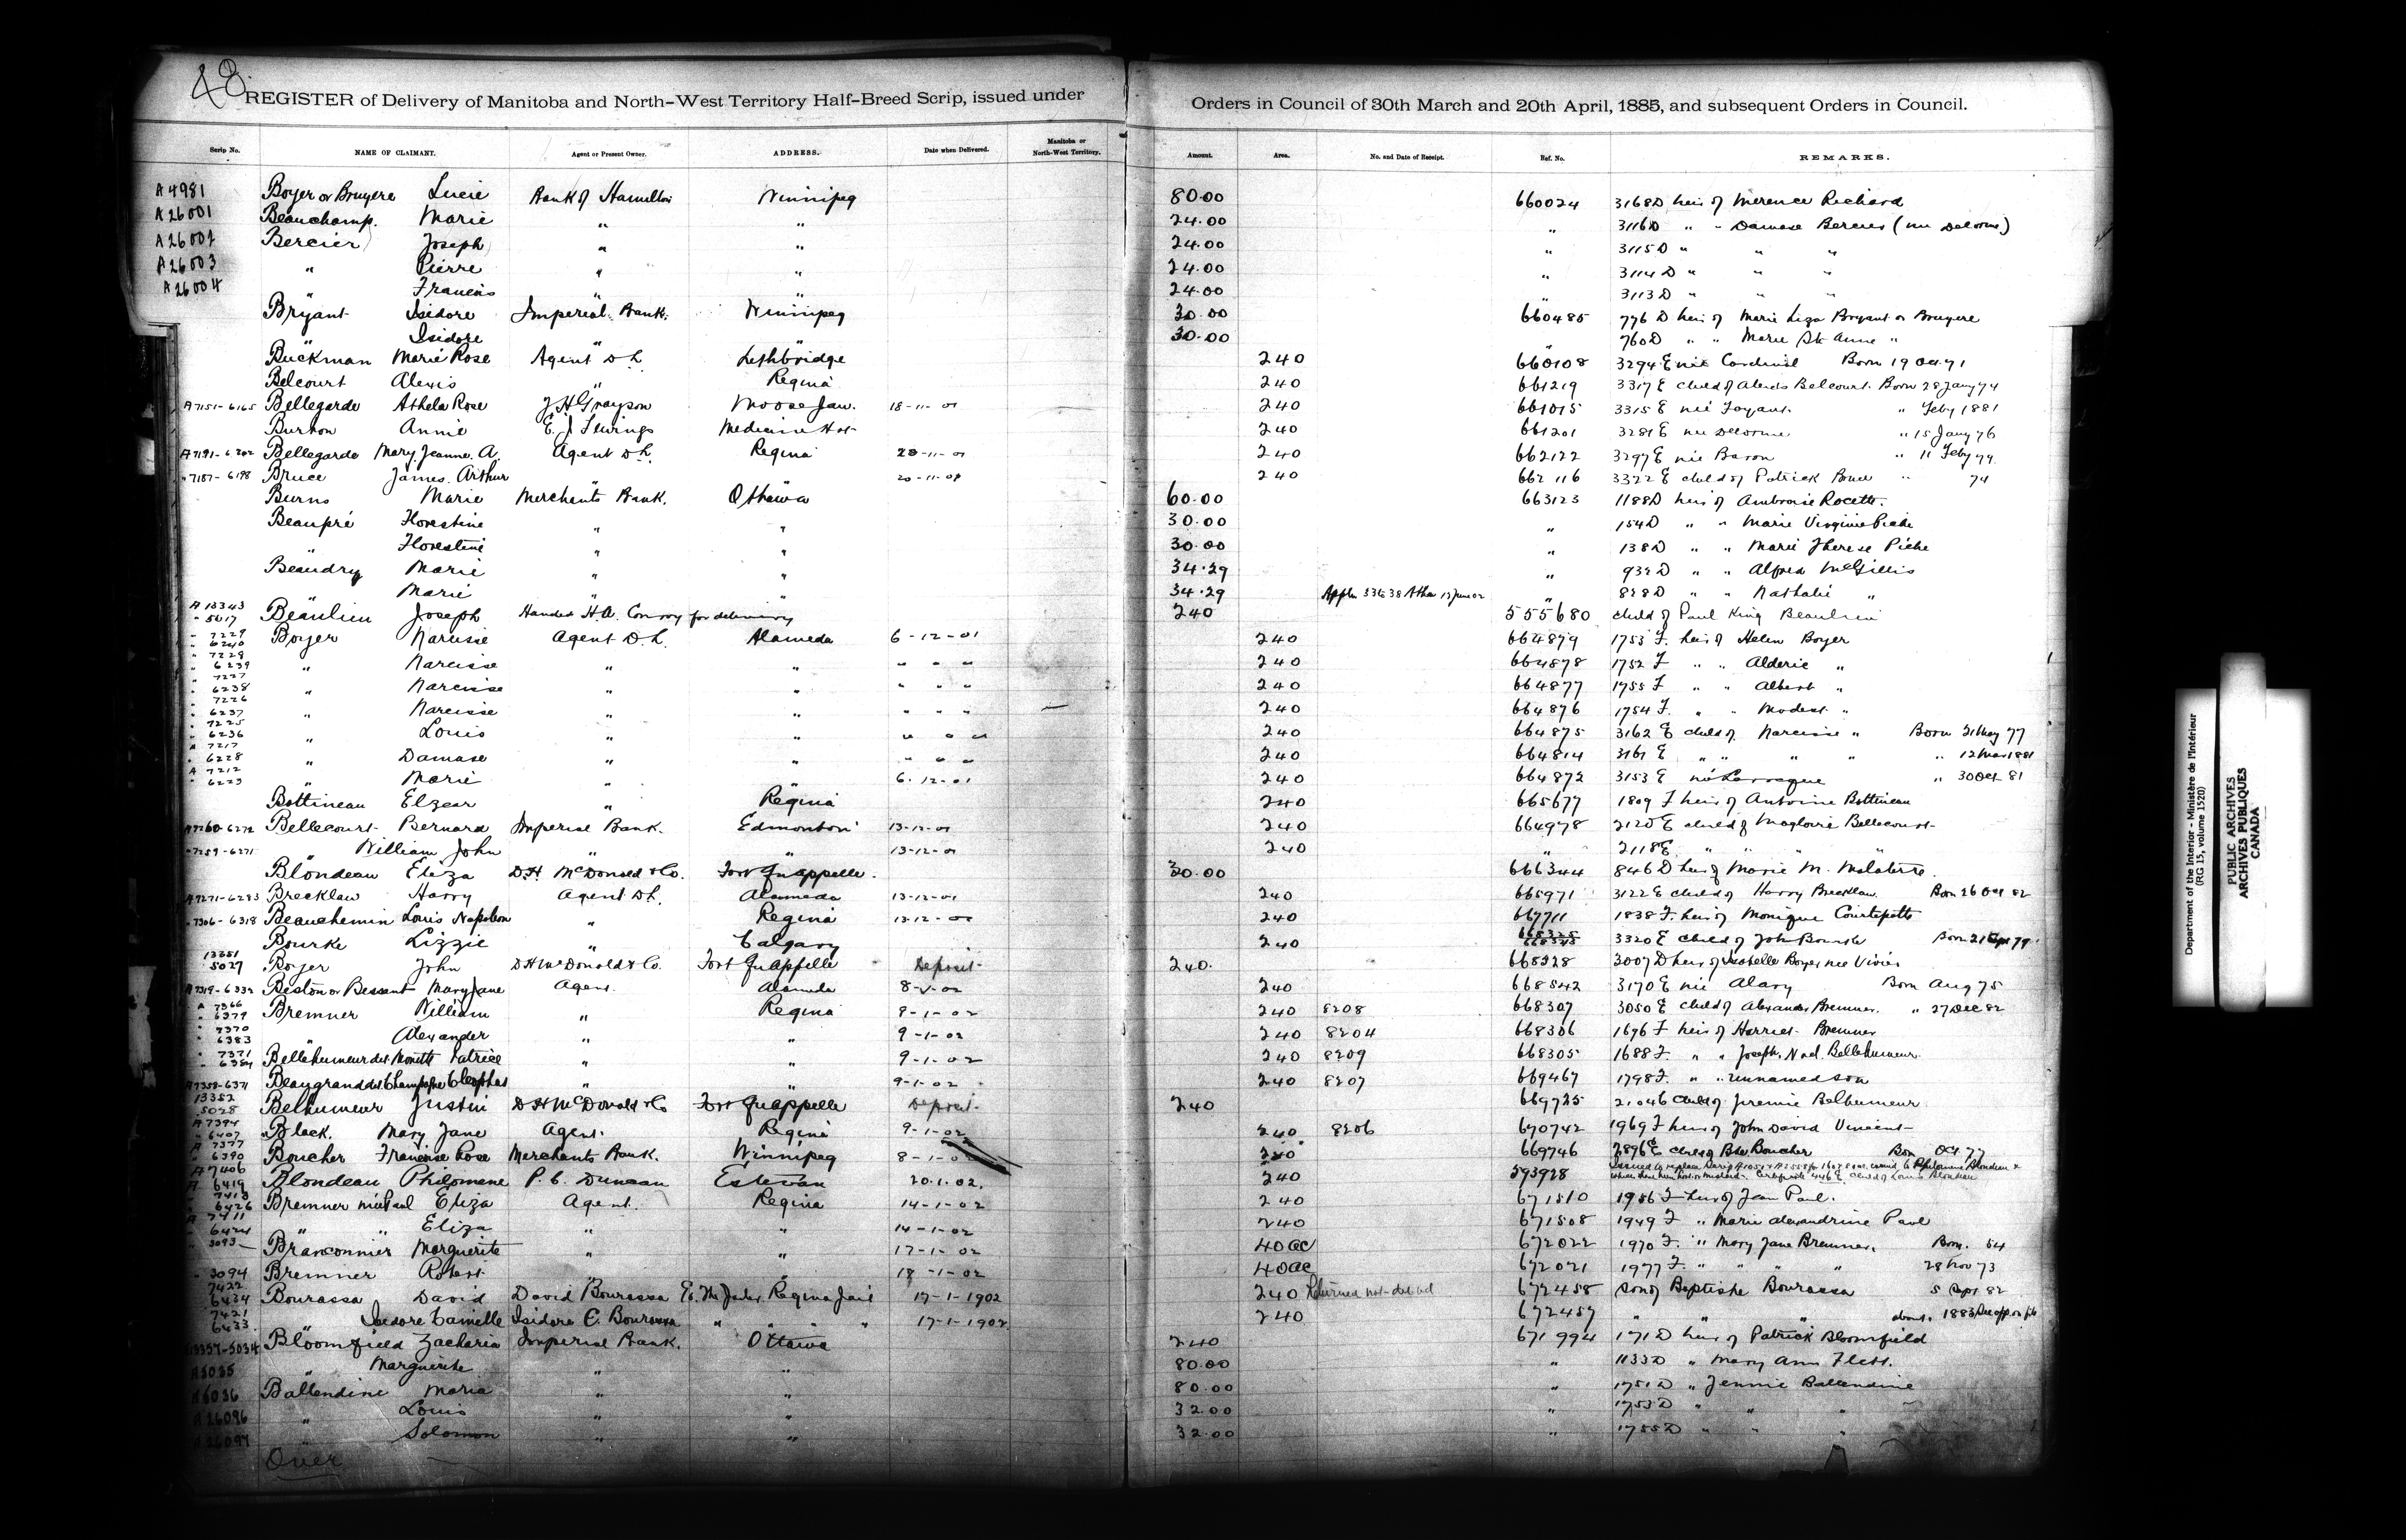 48.
REGISTER of Delivery of Manitoba and North-West Territory Half-Breed Scrip, issued under Orders in Council of 30th March and 20th April, 1885, and subsequent Orders in Council.
Scrip No. NAME OF CLAIMANT. Agent or Present Owner. ADDRESS. Date when Delivered. Manitoba or North-West Territory. Amount. Area. No. and Date of Receipt. Ref. No. REMARKS.
A4981 Boyer or Bruyere Lucie Bank of Hamilton Winnipeg 80.00 660024 3168D heir of Merence Richard
A26001 Beauchamp Marie " " 24.00 " 3116D " " Damase Bercier (nee Delorme)
A26002 Bercier Joseph " " 24.00 " 3115D " " "
A26003 " Pierre " " 24.00 " 3114D " " "
A26004 " Francois " " 24.00 " 3113D " " "
Bryant Isidore Imperial Bank. Winnipeg 30.00 660485 776 D heir of Marie Liza Bryant or Bruyere
" Isidore " " 30.00 " 760D " " Marie Ste Anne "
Buckman Marie Rose Agent D L Lethbridge 240 660108 3294 E nee Cardinal Born 19 Oct. 71
Belcourt Alexis " Regina 240 661219 3317 E child of Alexis Belcourt Born 28 Jany 74
A7151-6165 Bellegarde Athela Rose J H Grayson Moose Jaw. 18-11-01 240 661015 3315 E nee Foyant " Feby 1881
Burton Annie E. J. Fewings Medicine Hat 240 661201 3281 E nee Delorme " 15 Jany 76
A7191-6202 Bellegarde Mary Jeanne A. Agent D L. Regina 20-11-01 240 662122 3297 E nee Baron " 11 Feby 79
" 7187-6198 Bruce James Arthur " " 20-11-01 240 662116 3322 E child of Patrick Bruce " 74
Burns Marie Merchants Bank. Ottawa 60.00 663123 1188D heir of Ambroise Rocette.
Beaupré Florestine " " 30.00 " 154D " " Marie Virginie Piche
" Florestine " " 30.00 " 138D " " Marie Therese Piche
Beaudry Marie " " 34.29 " 932D " " Alfred McGillis
" Marie " " 34.29 " 828D " " Nathalie "
A 13343 " 5017 Beaulieu Joseph Handed H.A. Conroy for delivery 240 555680 child of Paul King Beaulieu
" 7229 " 6240 Boyer Narcisse Agent D. L. Alameda 6-12-01 240 664879 1753 F. heir of Helen Boyer
" 7228 " 6239 " Narcisse " " " " " 240 664878 1752 F " " Alderic "
" 7227 " 6238 " Narcisse " " " " " 240 664877 1755 F " " Albert "
" 7226 " 6237 " Narcisse " " " " " 240 664876 1754 F. " " Modest "
" 7225 " 6236 " Louis " " " " " 240 664875 3162 E child of Narcisse " Born 21 May 77
A 7217 " 6228 " Damase " " " " " 240 664814 3161 E " " " " " 12 Mar 1881
A 7212 " 6223 " Marie " " 6-12-01 240 664872 3153 E née Larocque " 30 Oct 81
Bottineau Elzear " Regina 240 665677 1809 F heir of Antoine Bottineau
A7260-6272 Bellecourt Bernard Imperial Bank. Edmonton 13-12-01 240 664978 2120 E child of Magloire Bellecourt
" 7259-6271 " William John " " 13-12-01 240 " 2118E " " "
Blondeau Eliza D.H. McDonald & Co. Fort Qu'appelle. 30.00 666344 846 D heir of Marie M. Malaterre.
A7271-6283 Brecklaw Harry Agent D L. Alameda 13-12-01 240 665971 3122 E child of Harry Brecklaw. Born 26 Oct 82
" 7306-6318 Beauchemin Louis Napoleon " Regina 13-12-01 240 667711 1838 F. heir of Monique Courtepatte
Bourke Lizzie " Calgary 240 668325 3320 E child of John Bourke Born 21 Sept 79
13351 5027 Boyer John D H McDonald & Co. Fort Qu'appelle Deposit 240. 668328 3007 D heir of Isabelle Boyer nee Vivier
A7319-6332 Beston or Bessent Mary Jane Agent. Alameda 8-1-02 240 668542 3170 E nee Alary Born Aug 75
A 7366 " 6379 Bremner William " Regina 9-1-02 240 8208 668307 3050 E child of Alexander Bremner. " 27 Dec 82
" 7370 " 6383 " Alexander " " 9-1-02 240 8204 668306 1676 F heir of Harriet Bremner
" 7371 " 6384 Bellehumeur dit Monette Patrice " " 9-1-02 240 8209 668305 1688 F. " " Joseph Noel Bellehumeur.
A7358-6371 Beaugrand dit Champagne Cleophas " " 9-1-02 240 8207 669467 1798 F. " " unnamed son
13352 5028 Belhumeur Justin D H McDonald & Co Fort Qu'appelle Deposit. 240 669725 child of Jeremie Belhumeur.
A 7394 " 6407 Black. Mary Jane Agent. Regina 9-1-02 240 8206 670742 1969 F heir of John David Vincent
A 7377 " 6390 Boucher Francoise Rose Merchants Bank. Winnipeg 8-1-02 240 669746 2896 E child of Bte Boucher Born Oct 77
A 7406 " 6419 Blondeau Philomene P. C. Duncan Estevan 20.1.02. 240 593928 Certificate 446 E. child of Louis Blondeau
" 7413 " 6426 Bremner née Paul Eliza Agent. Regina 14-1-02 240 671510 1956 F heir of Jean Paul.
A 7411 " 6424 " " Eliza " " 14-1-02 240 671508 1949 F " Marie Alexandrine Paul
" 3093 Branconnier Marguerite " " 17-1-02 40 ac 672022 1970 F. " Mary Jane Bremner. Born. 54
" 3094 Bremner Robert " " 18-1-02 40 ac 672021 1977 F. " " " " 28 Nov 73
7422 6434 Bourassa David David Bourassa Regina Jail 17-1-1902 240 Returned not delivd 672458 son of Baptiste Bourassa 5 Sept 82
7421 6433. " Isidore Camille Isidore C. Bourassa " " " " 17-1-1902. 240 672457 " " " about. 1883
13357-5034 Bloomfield Zacharia Imperial Bank. Ottawa 240 671994 171 D heir of Patrick Bloomfield
A5035 " Marguerite " " 80.00 " 1133D " Mary Ann Flett.
A5036 Ballendine Maria " " 80.00 " 1751 D " Jennie Ballendine
A26096 " Louis " " 32.00 " 1753D " " "
A26097 " Solomon " " 32.00 " 1755D " " "
Over
Department of the Interior - Ministère de l'Intérieur
(RG 15, volume 1520)
PUBLIC ARCHIVES
ARCHIVES PUBLIQUES
CANADA